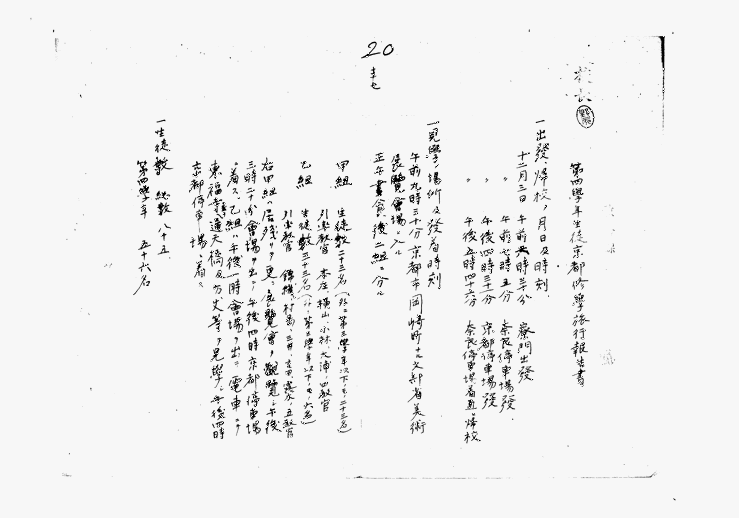 20
校長
第四學年生徒京都修學旅行報告書
一出發、帰校ノ月日及時刻
十二月三日 午前六時三十分 寮門出發
〃 午前七時五分 奈良停車場發
〃 午後四時三十分 京都停車場發
〃 午後五時四十六分 奈良停車場着直ニ帰校
一見學ノ場所及發着時刻
午前九時三十分京都市岡崎町ナル文部省美術
展覧會場ニ入ル
正午晝食ノ後二組ニ分ル
甲組 生徒數
引率教官 本庄、横山、小林、大浦ノ四教官
乙組 生徒數三十三名
引率教官
右甲組ハ居残リテ更ニ展覧會ヲ觀覧シ午後
三時二十分會場ヲ出テ午後四時京都停車場
ニ着ス、乙組ハ午後一時會場ヲ出テ電車ニテ
東福寺通天橋及方丈等ヲ見學シ午後四時
京都停車場ニ着ス
一生徒數 總數 八十五
第四學年 五十六名